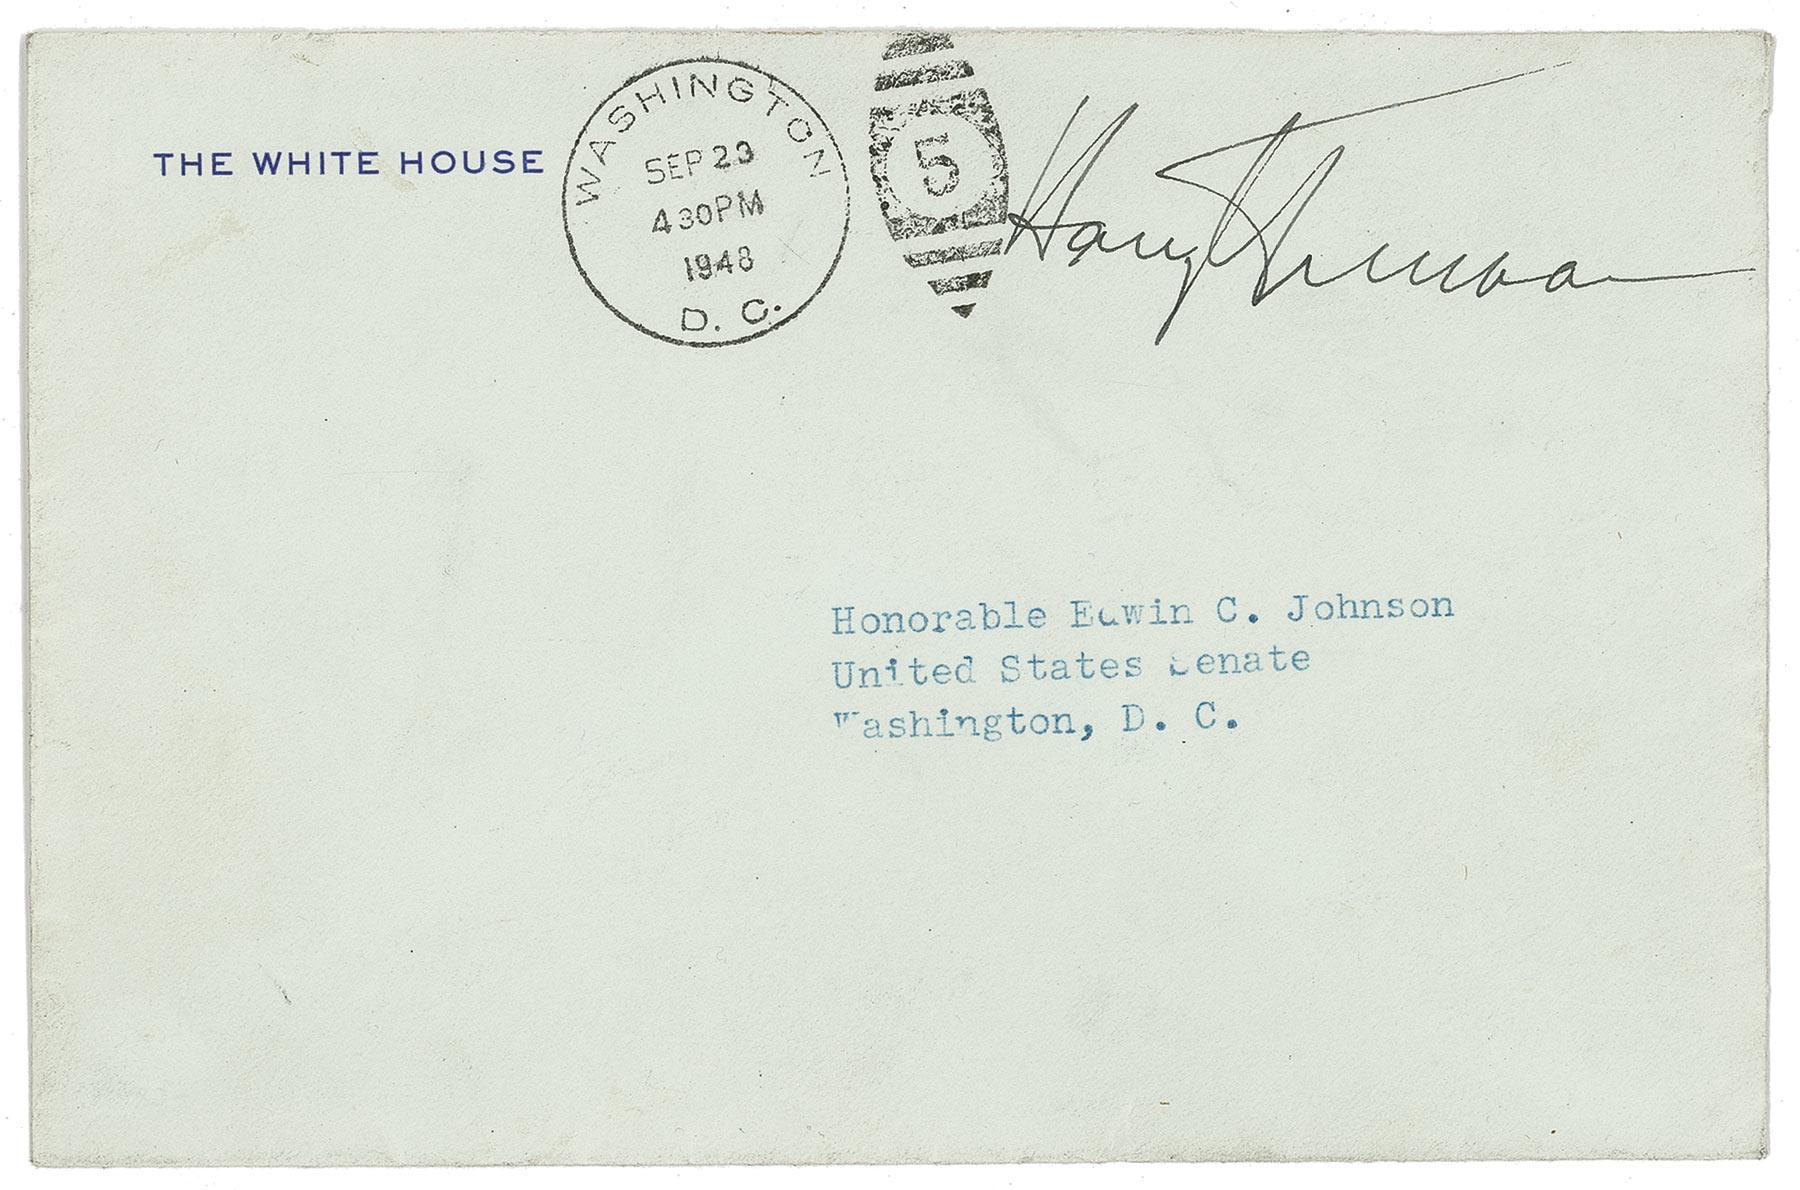 THE WHITE HOUSE
WASHINGTON
SEP 23
4 30 PM
1948
D. C.
5
Harry Truman
Honorable Edwin C. Johnson
United States Senate
Washington, D. C.